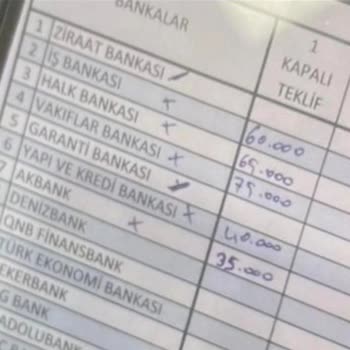 BANKALAR
1
KAPALI
TEKLİF
1 ZİRAAT BANKASI
2 İŞ BANKASI
3 HALK BANKASI + 60.000
4 VAKIFLAR BANKASI + 65.000
5 GARANTİ BANKASI + 75.000
6 YAPI VE KREDİ BANKASI +
7 AKBANK 40.000
DENİZBANK + 35.000
QNB FİNANSBANK
TÜRK EKONOMİ BANKASI
EKERBANK
G BANK
ADOLUBANK